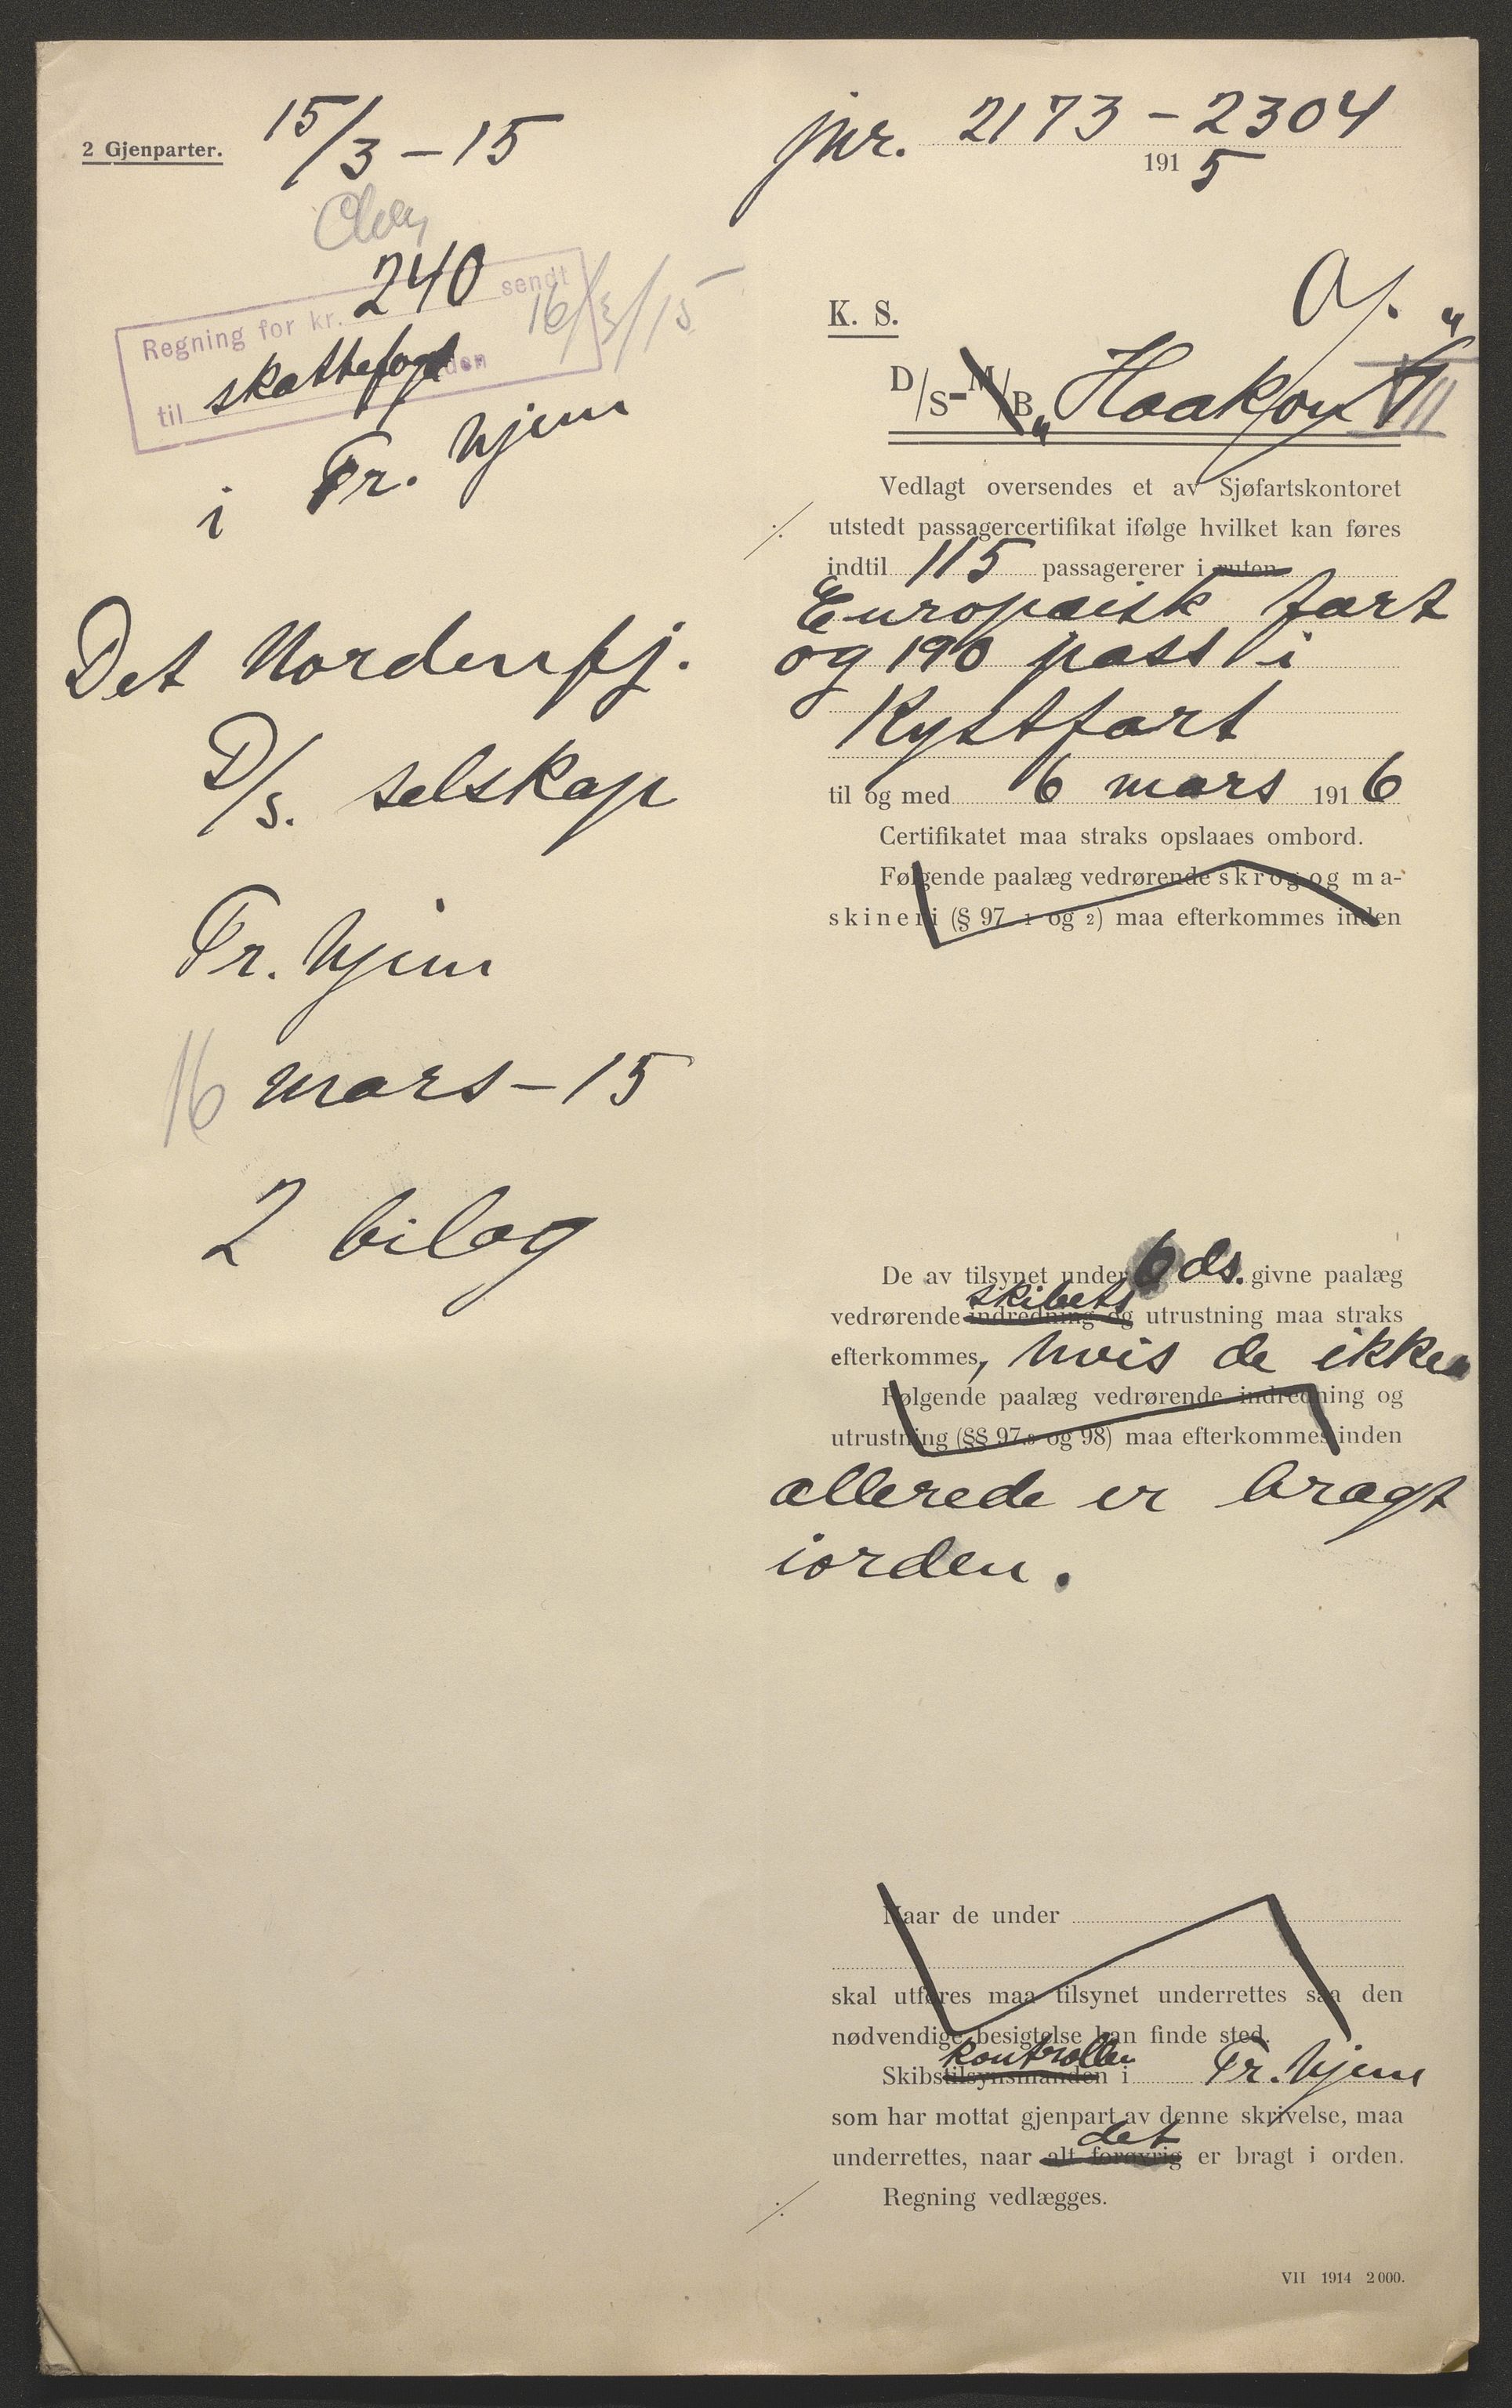 2 Gjenparter.
15/3 - 15
240
Regning for kr. sendt
16/3/15
til skattefogden
i Tr.hjem
Det Nordenfj.
D/S. selskap
Tr.hjem
16 mars - 15
2 bilag
jnr. 2173 - 2304
1915
K. S.
D/S - M/B „Haakon VII“
Vedlagt oversendes et av Sjøfartskontoret
utstedt passagercertifikat ifølge hvilket kan føres
indtil 115 passagererer i ruten
Europæisk fart
og 190 pass i
Kystfart
til og med 6 mars 1916
Certifikatet maa straks opslaaes ombord.
Følgende paalæg vedrørende skrog og ma-
skineri (§ 97 1 og 2) maa efterkommes inden
De av tilsynet under 6 ds. givne paalæg
skibets
vedrørende indredning og utrustning maa straks
efterkommes, hvis de ikke
Følgende paalæg vedrørende indredning og
utrustning (§§ 97.3 og 98) maa efterkommes inden
allerede er bragt
iorden.
Naar de under
skal utføres maa tilsynet underrettes saa den
nødvendige besigtelse kan finde sted.
kontrollen
Skibstilsynsmanden i Tr.hjem
som har mottat gjenpart av denne skrivelse, maa
det
underrettes, naar alt forøvrig er bragt i orden.
Regning vedlægges.
VII 1914 2000.